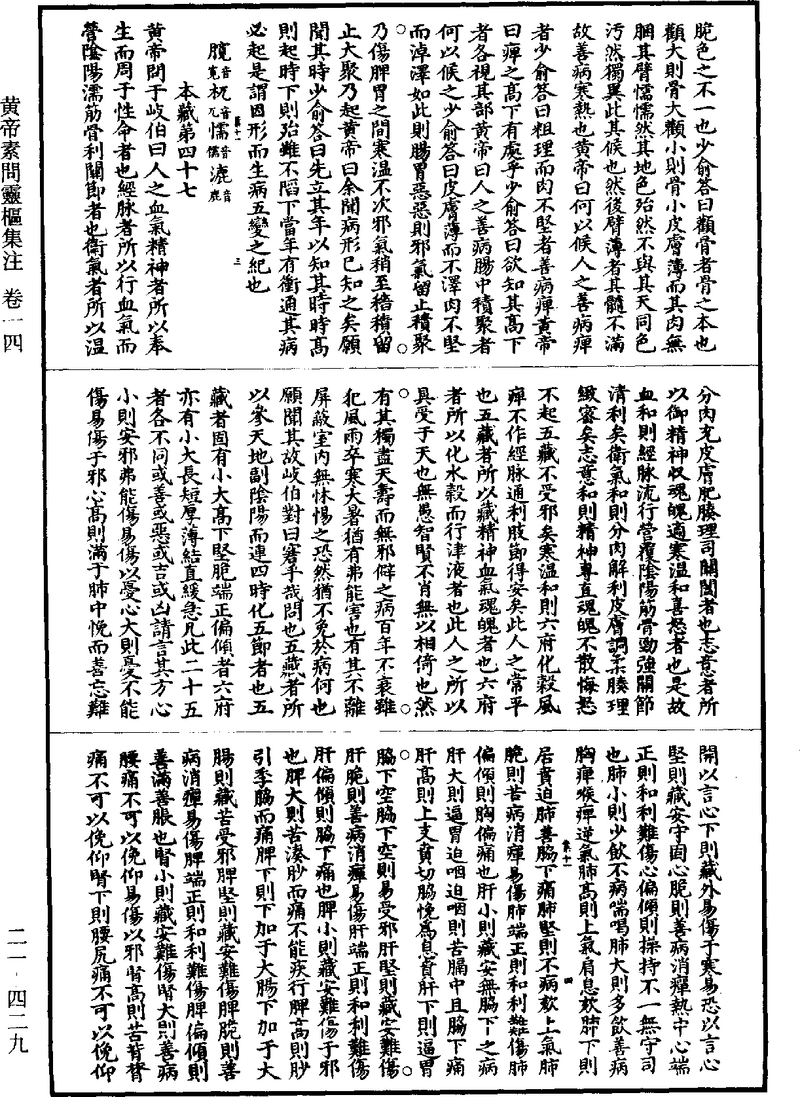 黃帝素問靈樞集注 卷一四
二一·四二九
脆色之不一也少俞答曰顴骨者骨之本也
顴大則骨大顴小則骨小皮膚薄而其肉無
䐃其臂懦懦然其地色殆然不與其天同色
汚然獨異此其候也然後臂薄者其髓不滿
故善病寒熱也黃帝曰何以候人之善病痺
者少俞答曰粗理而肉不堅者善病痺黃帝
曰痺之高下有處乎少俞答曰欲知其高下
者各視其部黃帝曰人之善病腸中積聚者
何以候之少俞答曰皮膚薄而不澤肉不堅
而淖澤如此則腸胃惡惡則邪氣留止積聚
乃傷脾胃之間寒溫不次邪氣稍至稸積留
止大聚乃起黃帝曰余聞病形已知之矣願
聞其時少俞答曰先立其年以知其時時高
則起時下則殆雖不陷下當年有衝通其病
必起是謂因形而生病五變之紀也
臗音寬杬音兀懦音儒漉音鹿
本藏第四十七
黃帝問于岐伯曰人之血氣精神者所以奉
生而周于性命者也經脉者所以行血氣而
營陰陽濡筋骨利關節者也衛氣者所以溫
分肉充皮膚肥腠理司關闔者也志意者所
以御精神收魂魄適寒溫和喜怒者也是故
血和則經脉流行營覆陰陽筋骨勁強關節
清利矣衛氣和則分肉解利皮膚調柔腠理
緻密矣志意和則精神專直魂魄不散悔怒
不起五藏不受邪矣寒溫和則六府化穀風
痺不作經脉通利肢節得安矣此人之常平
也五藏者所以藏精神血氣魂魄者也六府
者所以化水穀而行津液者也此人之所以
具受于天也無愚智賢不肖無以相倚也然
有其獨盡天壽而無邪僻之病百年不衰雖
犯風雨卒寒大暑猶有弗能害也有其不離
屏蔽室內無怵惕之恐然猶不免於病何也
願聞其故岐伯對曰窘乎哉問也五藏者所
以參天地副陰陽而連四時化五節者也五
藏者固有小大高下堅脆端正偏傾者六府
亦有小大長短厚薄結直緩急凡此二十五
者各不同或善或惡或吉或凶請言其方心
小則安邪弗能傷易傷以憂心大則憂不能
傷易傷于邪心高則滿于肺中悗而善忘難
開以言心下則藏外易傷于寒易恐以言心
堅則藏安守固心脆則善病消癉熱中心端
正則和利難傷心偏傾則操持不一無守司
也肺小則少飲不病喘喝肺大則多飲善病
胸痺喉痺逆氣肺高則上氣肩息欬肺下則
居賁迫肺善脇下痛肺堅則不病欬上氣肺
脆則苦病消癉易傷肺端正則和利難傷肺
偏傾則胸偏痛也肝小則藏安無脇下之病
肝大則逼胃迫咽迫咽則苦膈中且脇下痛
肝高則上支賁切脇悗爲息賁肝下則逼胃
脇下空脇下空則易受邪肝堅則藏安難傷
肝脆則善病消癉易傷肝端正則和利難傷
肝偏傾則脇下痛也脾小則藏安難傷于邪
也脾大則苦湊䏚而痛不能疾行脾高則䏚
引季脇而痛脾下則下加于大腸下加于大
腸則藏苦受邪脾堅則藏安難傷脾脆則善
病消癉易傷脾端正則和利難傷脾偏傾則
善滿善脹也腎小則藏安難傷腎大則善病
腰痛不可以俛仰易傷以邪腎高則苦背膂
痛不可以俛仰腎下則腰尻痛不可以俛仰